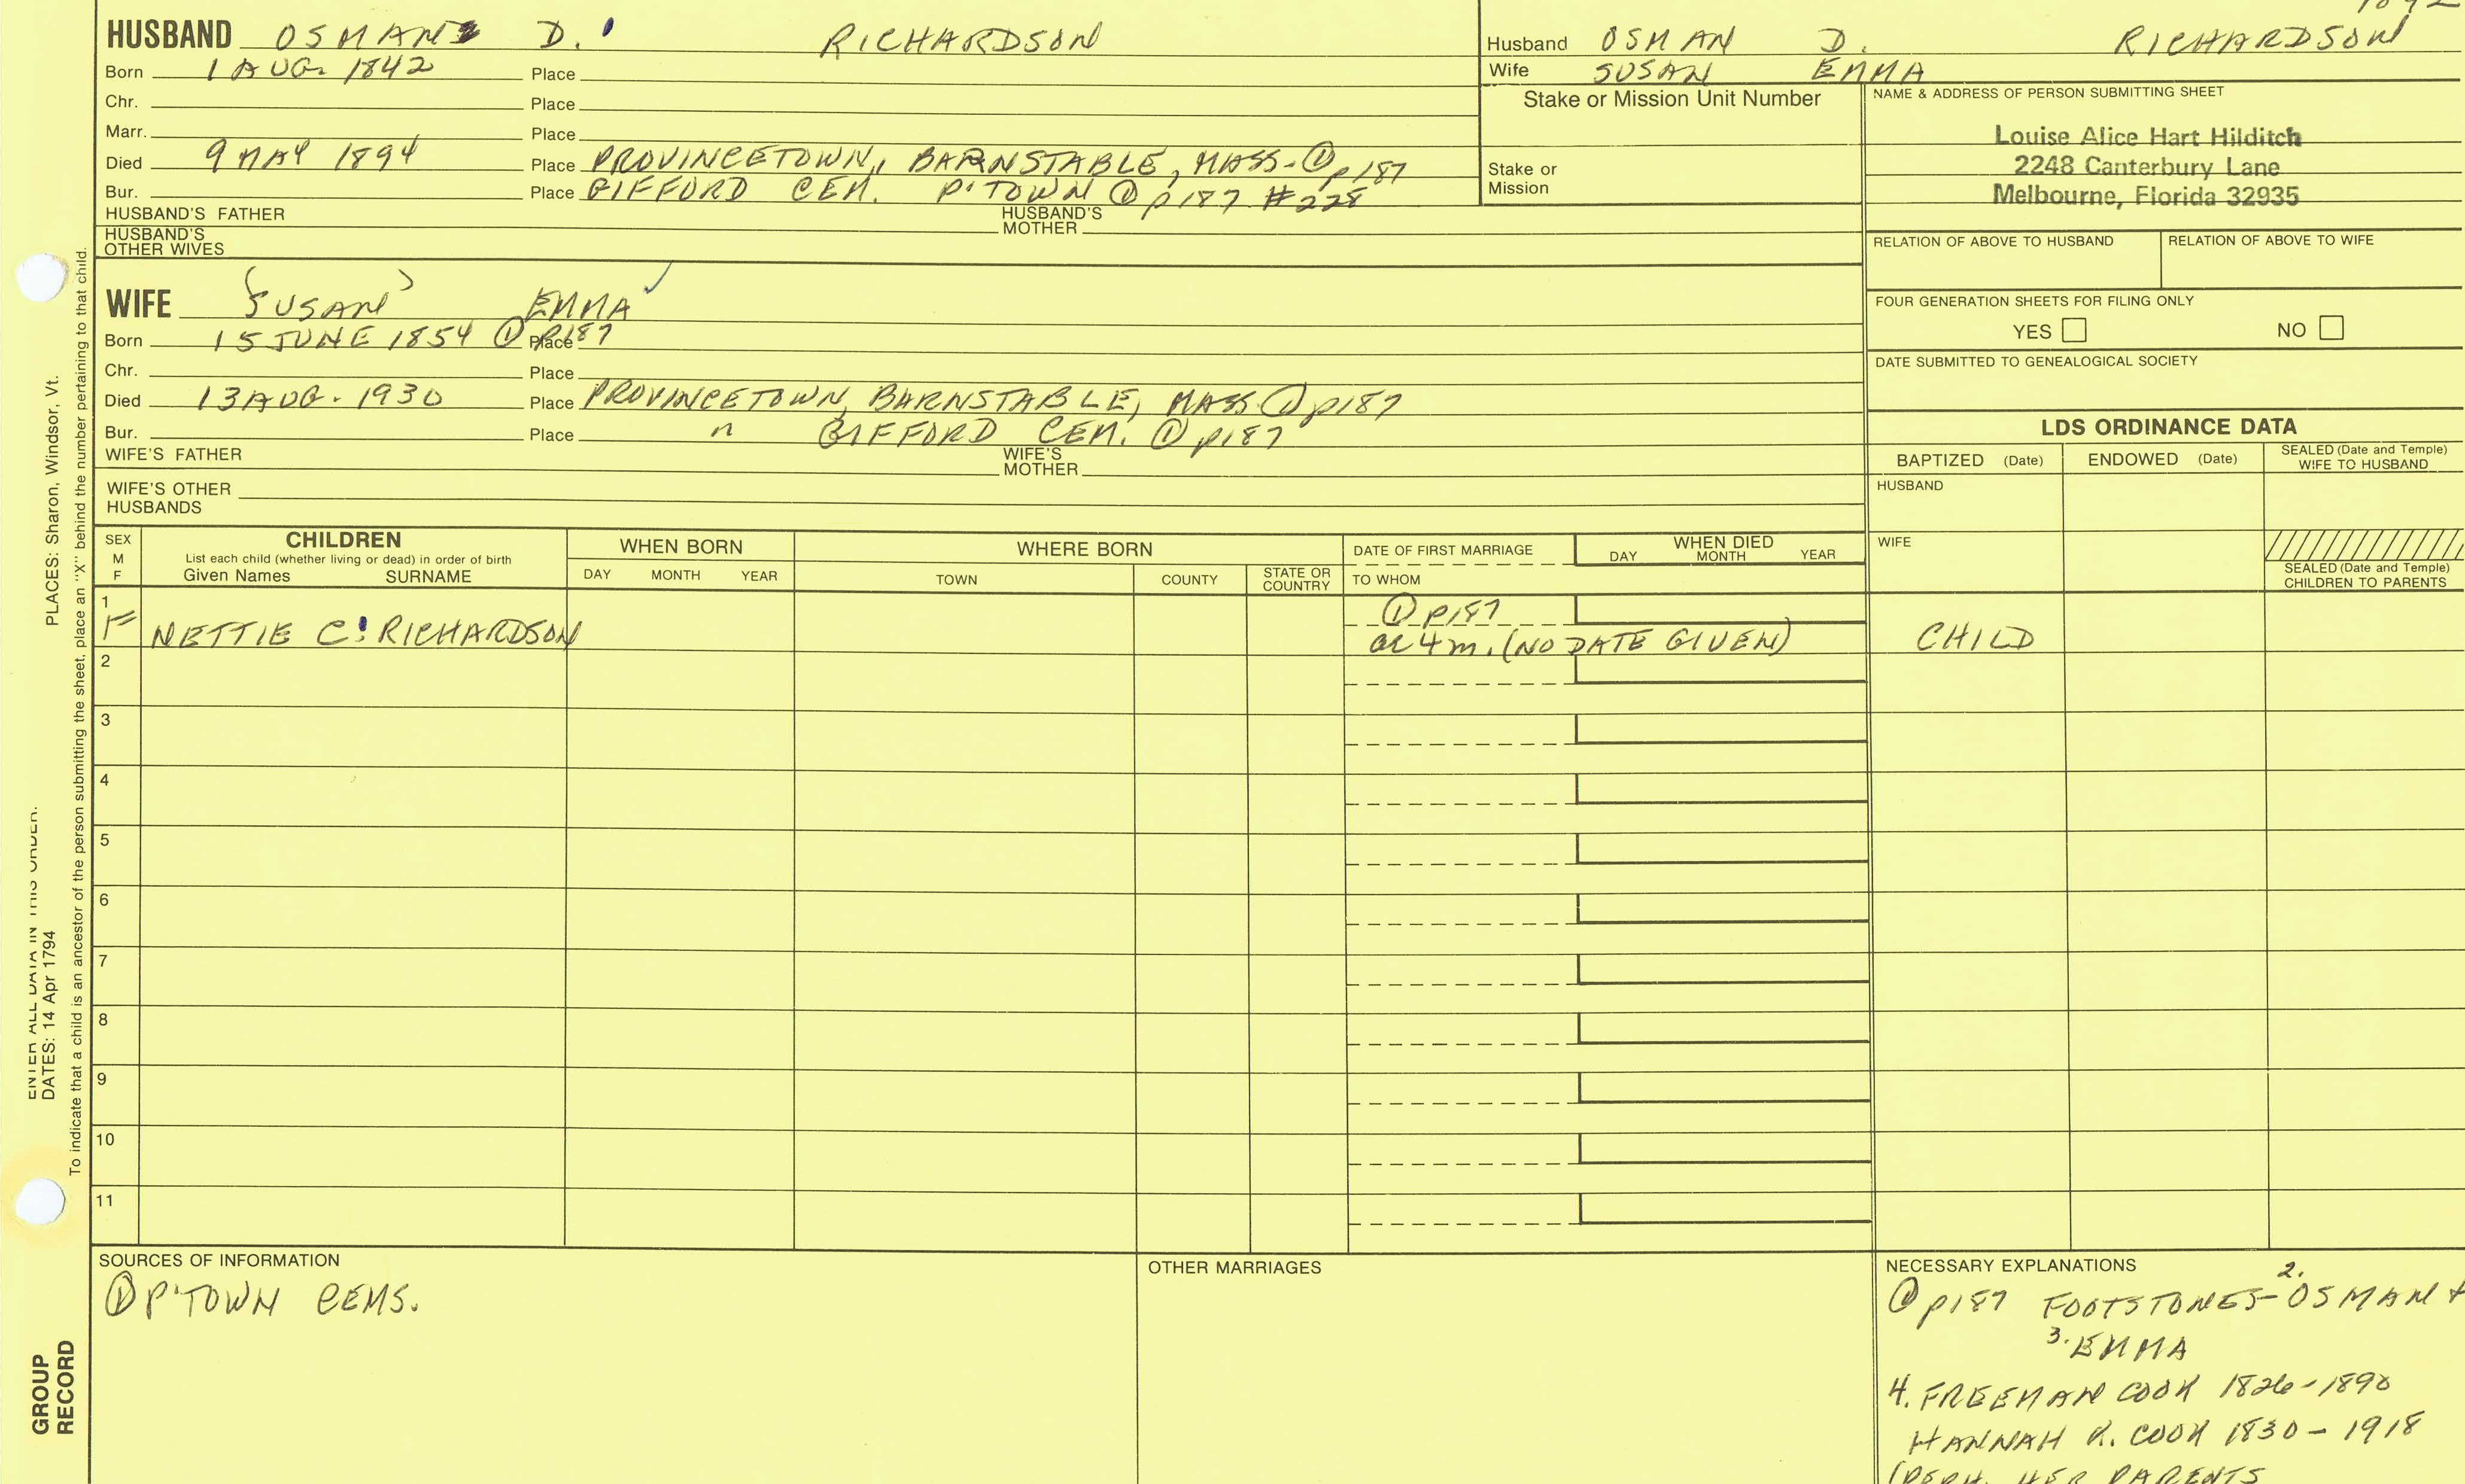 HUSBAND OSMAN D. RICHARDSON
Born 1 AUG. 1842 Place
Chr. Place
Marr. Place
Died 9 MAY 1894 Place PROVINCETOWN, BARNSTABLE, MASS. ① p187
Bur. Place GIFFORD CEM. P'TOWN ① p187 #228
HUSBAND'S FATHER HUSBAND'S MOTHER
HUSBAND'S OTHER WIVES
Husband OSMAN D. RICHARDSON
Wife SUSAN EMMA
Stake or Mission Unit Number
Stake or Mission
NAME & ADDRESS OF PERSON SUBMITTING SHEET
Louise Alice Hart Hilditch
2248 Canterbury Lane
Melbourne, Florida 32935
RELATION OF ABOVE TO HUSBAND RELATION OF ABOVE TO WIFE
FOUR GENERATION SHEETS FOR FILING ONLY
YES NO
DATE SUBMITTED TO GENEALOGICAL SOCIETY
WIFE (SUSAN) EMMA
Born 15 JUNE 1854 ① p187 Place
Chr. Place
Died 13 AUG. 1930 Place PROVINCETOWN, BARNSTABLE, MASS ① p187
Bur. Place " GIFFORD CEM. ① p187
WIFE'S FATHER WIFE'S MOTHER
WIFE'S OTHER HUSBANDS
LDS ORDINANCE DATA
BAPTIZED (Date) ENDOWED (Date) SEALED (Date and Temple) WIFE TO HUSBAND
HUSBAND
WIFE
SEALED (Date and Temple) CHILDREN TO PARENTS
SEX M F
CHILDREN
List each child (whether living or dead) in order of birth
Given Names SURNAME
WHEN BORN
DAY MONTH YEAR
WHERE BORN
TOWN COUNTY STATE OR COUNTRY
DATE OF FIRST MARRIAGE
TO WHOM
WHEN DIED
DAY MONTH YEAR
1
① p187
F NETTIE C. RICHARDSON ae 4m. (NO DATE GIVEN) CHILD
2
3
4
5
6
7
8
9
10
11
SOURCES OF INFORMATION
① P'TOWN CEMS.
OTHER MARRIAGES
NECESSARY EXPLANATIONS
① p187 FOOTSTONES- 2. OSMAN +
3. EMMA
4. FREEMAN COOK 1826-1890
HANNAH R. COOK 1830-1918
(PERH. HER PARENTS
ENTER ALL DATA IN THIS ORDER.
DATES: 14 Apr 1794
PLACES: Sharon, Windsor, Vt.
To indicate that a child is an ancestor of the person submitting the sheet, place an "X" behind the number pertaining to that child.
GROUP
RECORD